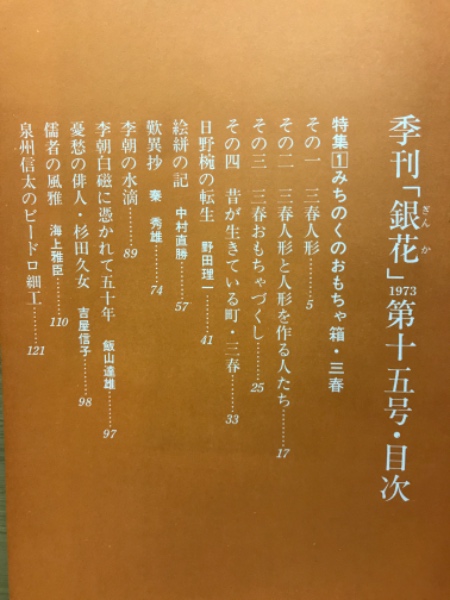 季刊「銀花」1973第十五号・目次
ぎんか
特集1みちのくのおもちゃ箱・三春
その一 三春人形………5
その二 三春人形と人形を作る人たち………17
その三 三春おもちゃづくし………25
その四 昔が生きている町・三春………33
日野椀の転生 野田理一………41
絵絣の記 中村直勝………57
歎異抄 秦秀雄………74
李朝の水滴………89
李朝白磁に憑かれて五十年 飯山達雄………97
憂愁の俳人・杉田久女 吉屋信子………98
儒者の風雅 海上雅臣………110
泉州信太のビードロ細工………121